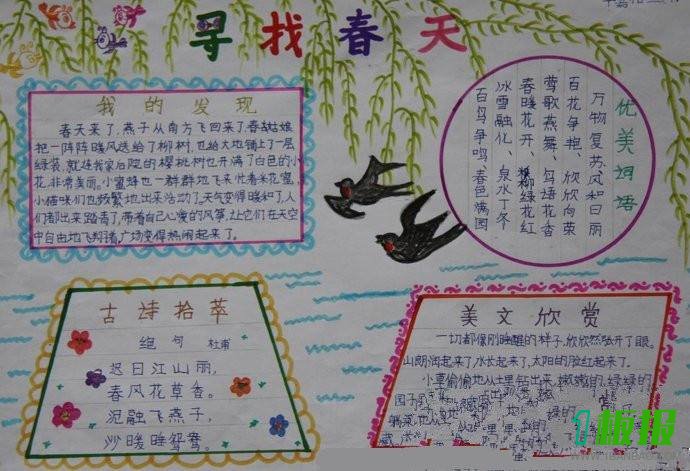 寻找春天
我的发现
春天来了,燕子从南方飞回来了,春姑娘
把一阵阵暖风送给了柳树,也给大地铺上了一层
绿装,就连我家后院的樱桃树也开满了白色的小
花,非常美丽。小蜜蜂也一群群地飞来忙着采花蜜,
小猫咪们也频繁地出来活动了,天气变得暖和了,人
们都出来踏青了,带着自己心爱的风筝,让它们在天空
中自由地飞翔着,广场变得热闹起来了。
优美词语
万物复苏、风和日丽
百花争艳、欣欣向荣
莺歌燕舞、鸟语花香
春暖花开、柳绿花红
冰雪融化、泉水丁冬
百鸟争鸣、春色满园
古诗拾萃
绝句 杜甫
迟日江山丽,
春风花草香。
泥融飞燕子,
沙暖睡鸳鸯。
美文欣赏
一切都像刚睡醒的样子,欣欣然张开了眼。
山朗润起来了,水长起来了,太阳的脸红起来了。
小草偷偷地从土里钻出来,嫩嫩的,绿绿的
园子
板报